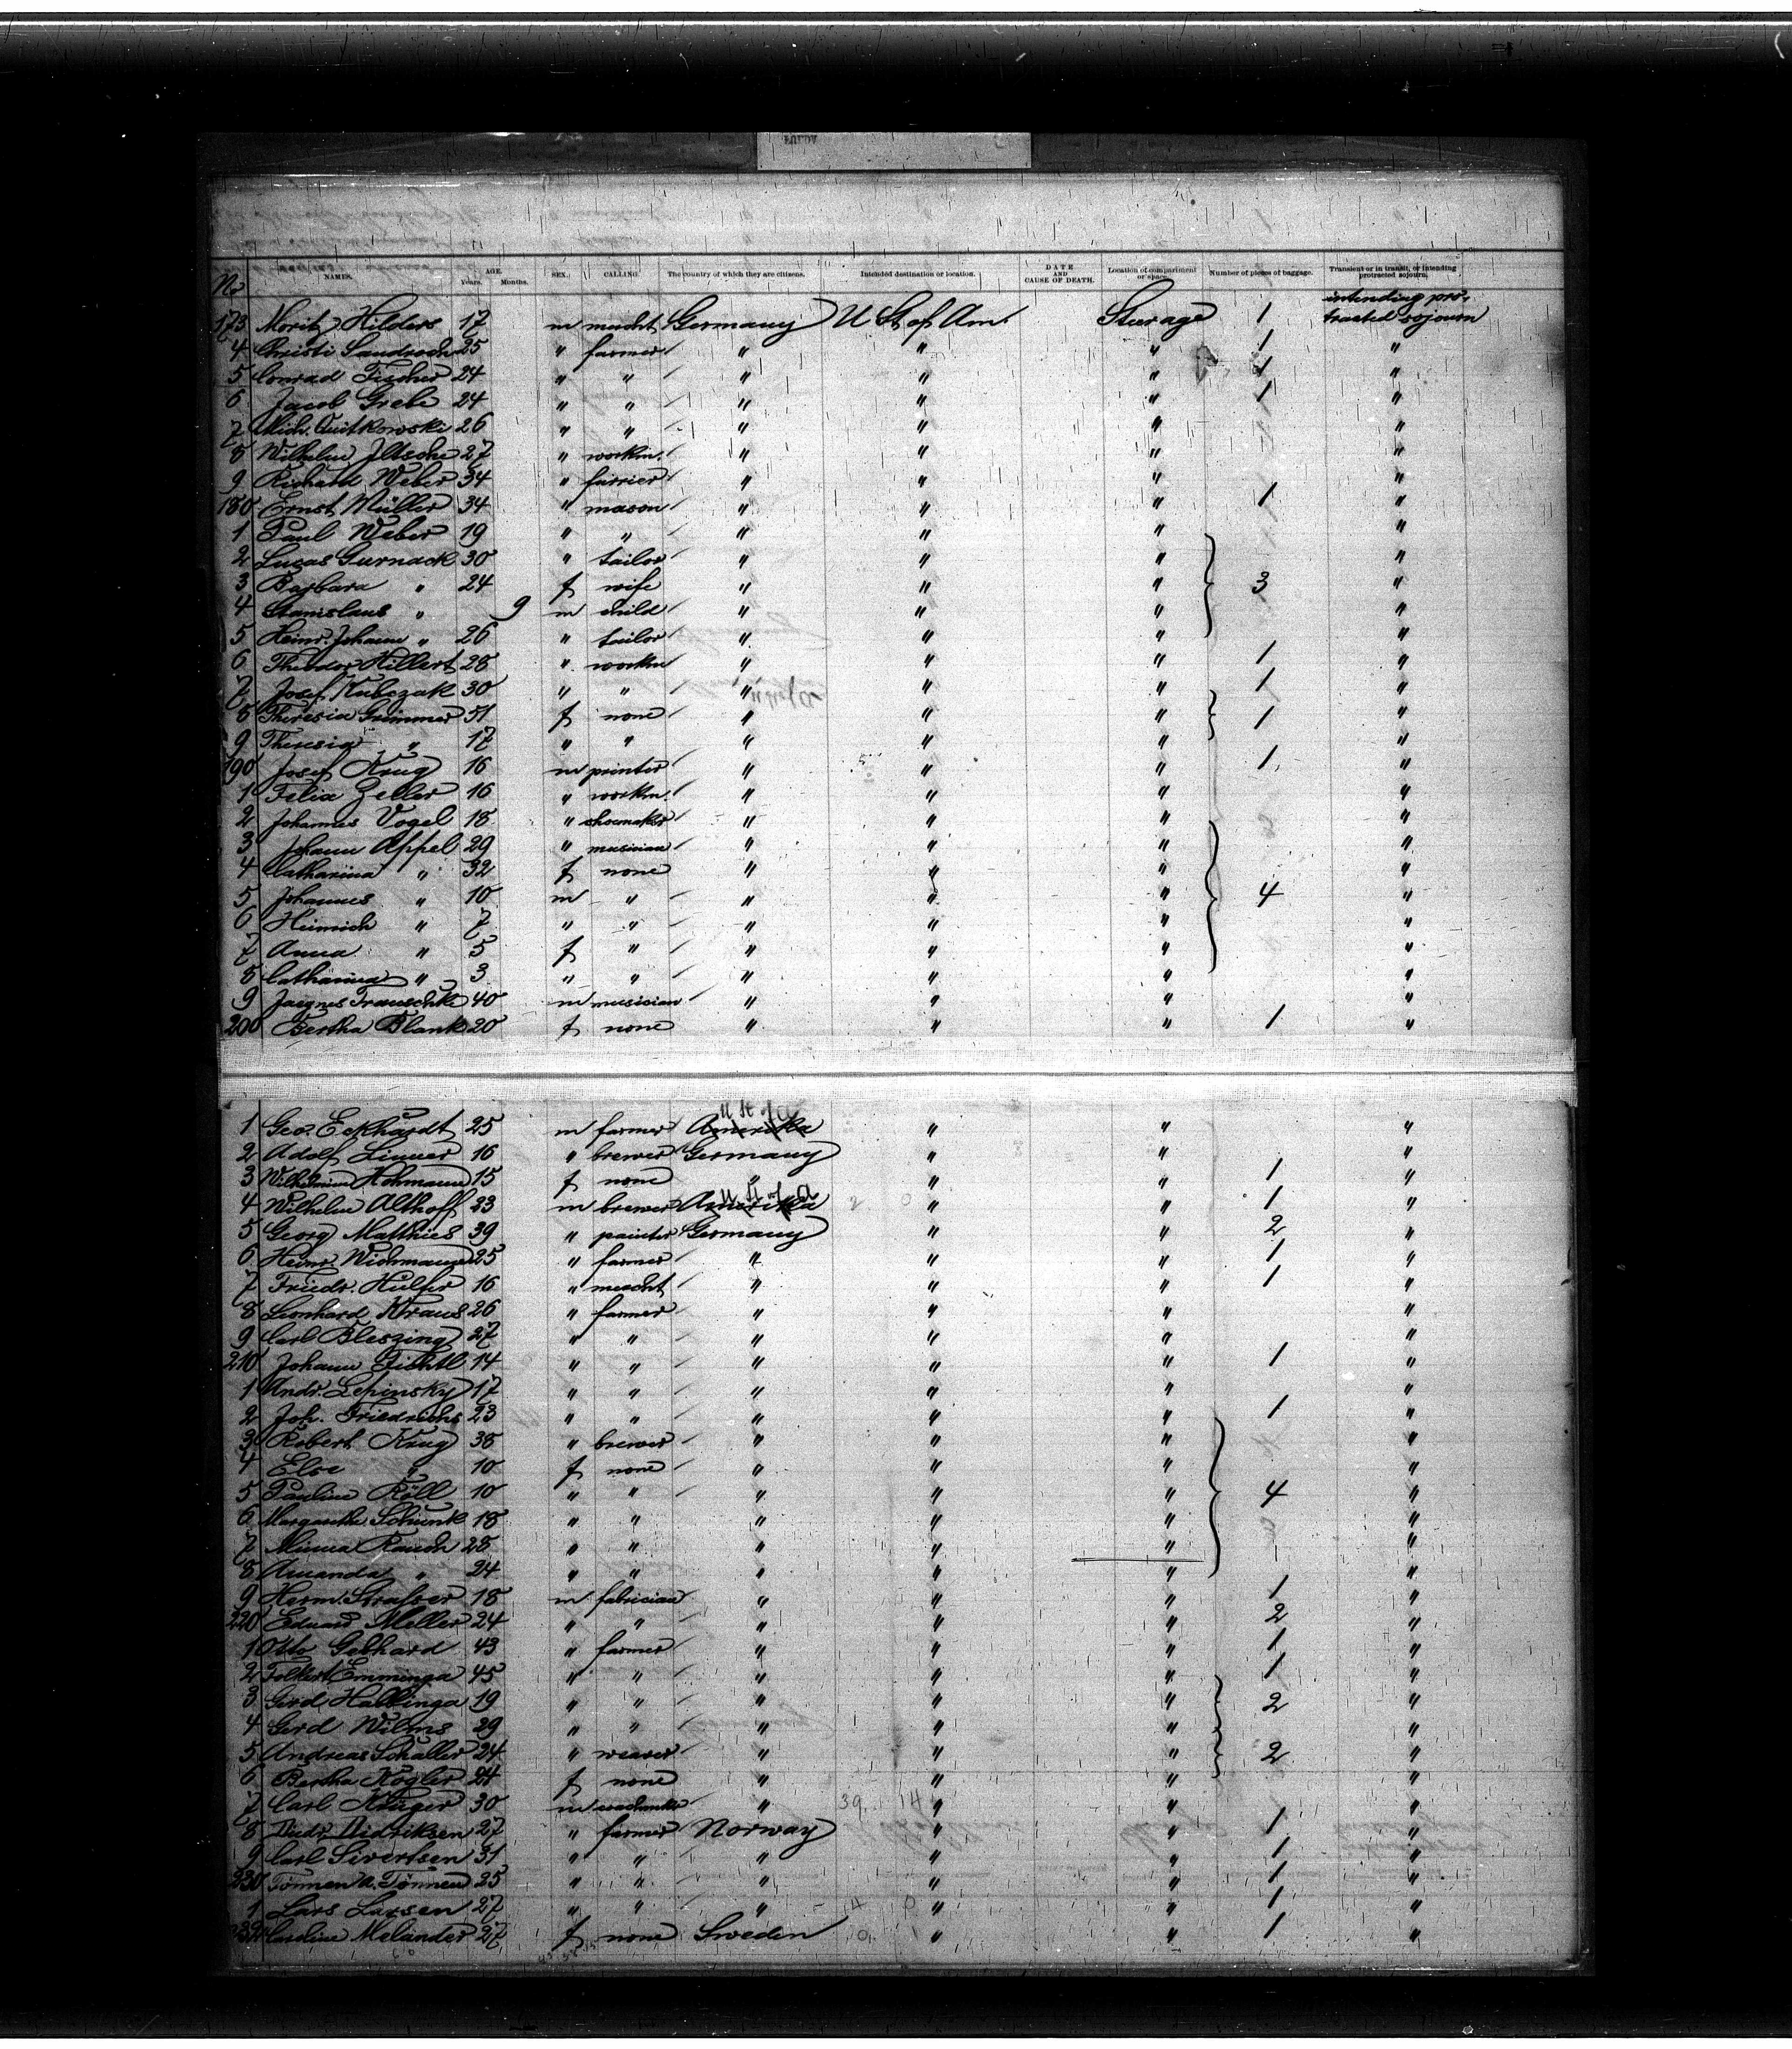 FULDA
No NAMES. AGE. Years. Months. SEX. CALLING. The country of which they are citizens. Intended destination or location. DATE AND CAUSE OF DEATH. Location of compartment or space. Number of pieces of baggage. Transient or in transit, or intending protracted sojourn.
173 Moritz Hilders 17 m mercht Germany U St of Am. Sturage 1 intending pro-tracted sojourn
4 Christi Landroch 25 " farmer " " " 1 "
5 Conrad Fischer 24 " " " " " 1 "
6 Jacob Grebe 24 " " " " " 1 "
7 Mich. Quitkowski 26 " " " " " "
8 Wilhelm Jltsche 27 " workm. " " " "
9 Richard Weber 34 " farrier " " " "
180 Ernst Müller 34 " mason " " " 1 "
1 Paul Weber 19 " " " " " "
2 Lucas Gurnack 30 " tailor " " " "
3 Barbara " 24 f wife " " " 3 "
4 Stanislaus " 9 m child " " " "
5 Heinr. Johann " 26 " tailor " " " "
6 Theodor Hillert 28 " workm " " " 1 "
7 Josef Kubczak 30 " " " " " 1 "
8 Theresia Grimmer 51 f none " " " 1 "
9 Theresia " 17 " " " " " "
190 Josef Krug 16 m printer " " " 1 "
1 Felix Zeller 16 " workm. " " " "
2 Johannes Vogel 18 " shoemaker " " " "
3 Johann Appel 29 " musician " " " "
4 Catharina " 32 f none " " " "
5 Johannes " 10 m " " " " 4 "
6 Heinrich " 7 " " " " " "
7 Anna " 5 f " " " " "
8 Catharina " 3 " " " " " "
9 Trauschke 40 m musician " " " "
200 Bertha Blank 20 f none " " " 1 "
U St of A
1 Geo. Eckhardt 25 m farmer Amerika " " "
2 Adolf Linner 16 " brewer Germany " " "
3 Wilhelmine Hohmann 15 f none " " 1 "
U St of A
4 Wilhelm Althoff 23 m brewer Amerika 2 0 " " 1 "
5 Georg Matthies 39 " painter Germany " " 2 "
6 Heinr. Wichmann 25 " farmer " " " 1 "
7 Friedr. Hülfer 16 " mercht " " " 1 "
8 Leonhard Kraus 26 " farmer " " " "
9 Carl Bleszing 27 " " " " " "
210 Johann Fichtl 14 " " " " " 1 "
1 Andr. Lepinsky 17 " " " " " "
2 Joh. Friedrichs 23 " " " " " 1 "
3 Robert Krug 38 " brewer " " " "
4 Else " 10 f none " " " "
5 Pauline Röll 10 " " " " " 4 "
6 Margarethe Schunk 18 " " " " " "
7 Minna Rauch 28 " " " " " "
8 Amanda " 24 " " " " " "
9 Herm. Strasser 18 m fabrician " " " 1 "
220 Eduard Meller 24 " " " " " 2 "
1 Otto Gebhard 43 " farmer " " " 1 "
2 Folkert Emminga 45 " " " " " 1 "
3 Gerd Hallinga 19 " " " " " 2 "
4 Gerd Wilms 29 " " " " " "
5 Andreas Schaller 24 " weaver " " " 2 "
6 Bertha Kögler 24 f none " " " "
7 Carl Krüger 30 m " 39 14 " " "
8 Diedr. Didriksen 27 " farmer Norway " " 1 "
9 Carl Sivertsen 31 " " " " " 1 "
230 Tönnen a. Tönnen 25 " " " " " 1 "
1 Lars Larsen 27 " " " 4 0 " " 1 "
232 Caroline Melander 27 f none Sweden 0 1 " " 1 "